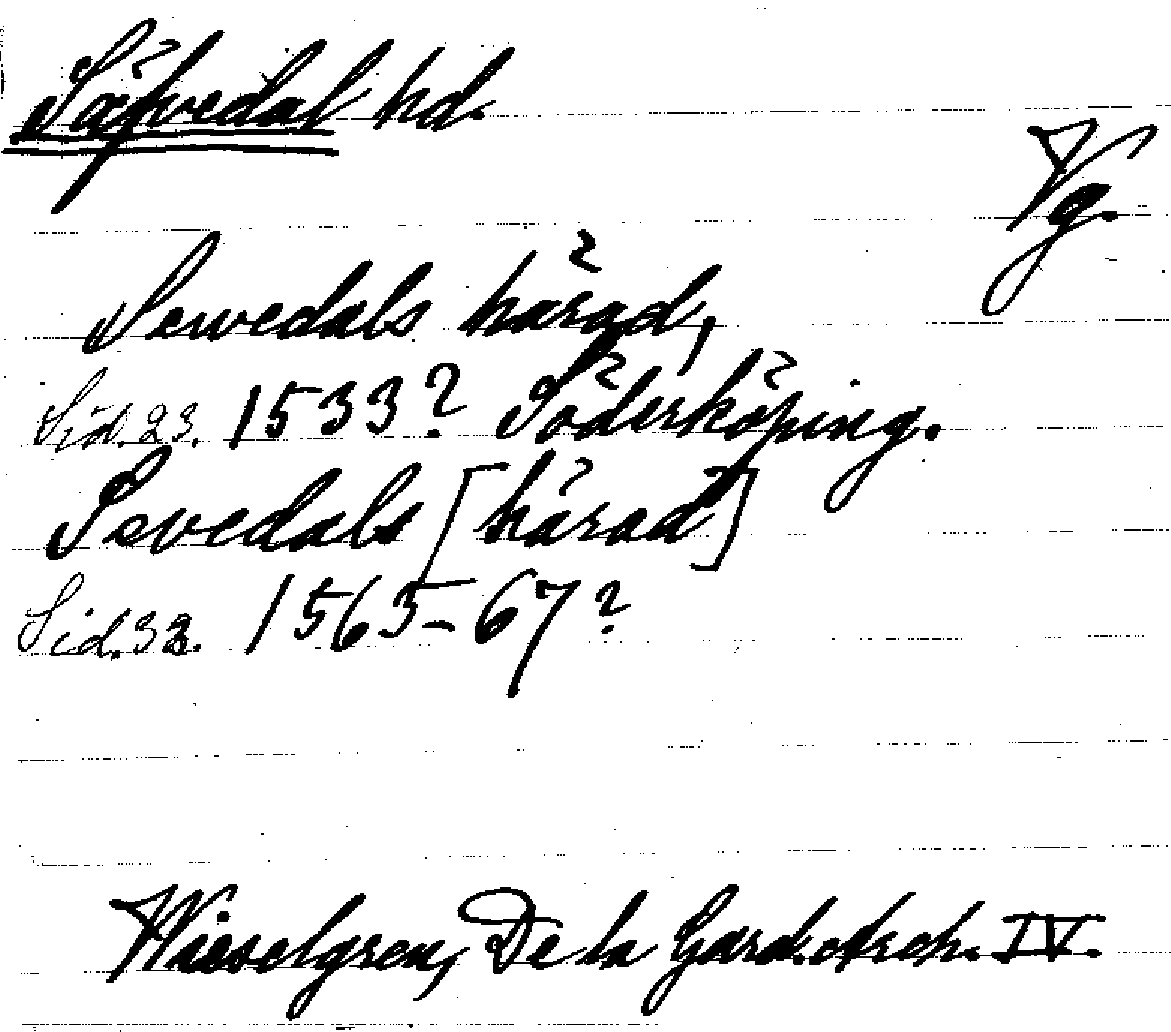 Säfvedal hd.
Vg.
Sewedals härad,
Sid. 23. 1533? Söderköping.
Sevedals [härad]
Sid. 32. 1565-67?
Wieselgren, De la Gard. Arch. IV.